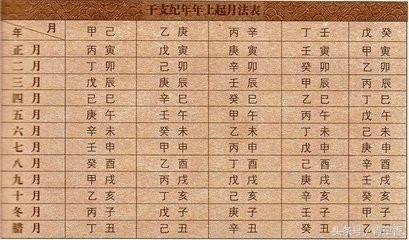 干支纪年年上起月法表
年 月 甲己 乙庚 丙辛 丁壬 戊癸
正月 丙寅 戊寅 庚寅 壬寅 甲寅
二月 丁卯 己卯 辛卯 癸卯 乙卯
三月 戊辰 庚辰 壬辰 甲辰 丙辰
四月 己巳 辛巳 癸巳 乙巳 丁巳
五月 庚午 壬午 甲午 丙午 戊午
六月 辛未 癸未 乙未 丁未 己未
七月 壬申 甲申 丙申 戊申 庚申
八月 癸酉 乙酉 丁酉 己酉 辛酉
九月 甲戌 丙戌 戊戌 庚戌 壬戌
十月 乙亥 丁亥 己亥 辛亥 癸亥
冬月 丙子 戊子 庚子 壬子 甲子
腊月 丁丑 己丑 辛丑 癸丑 乙丑
头条号